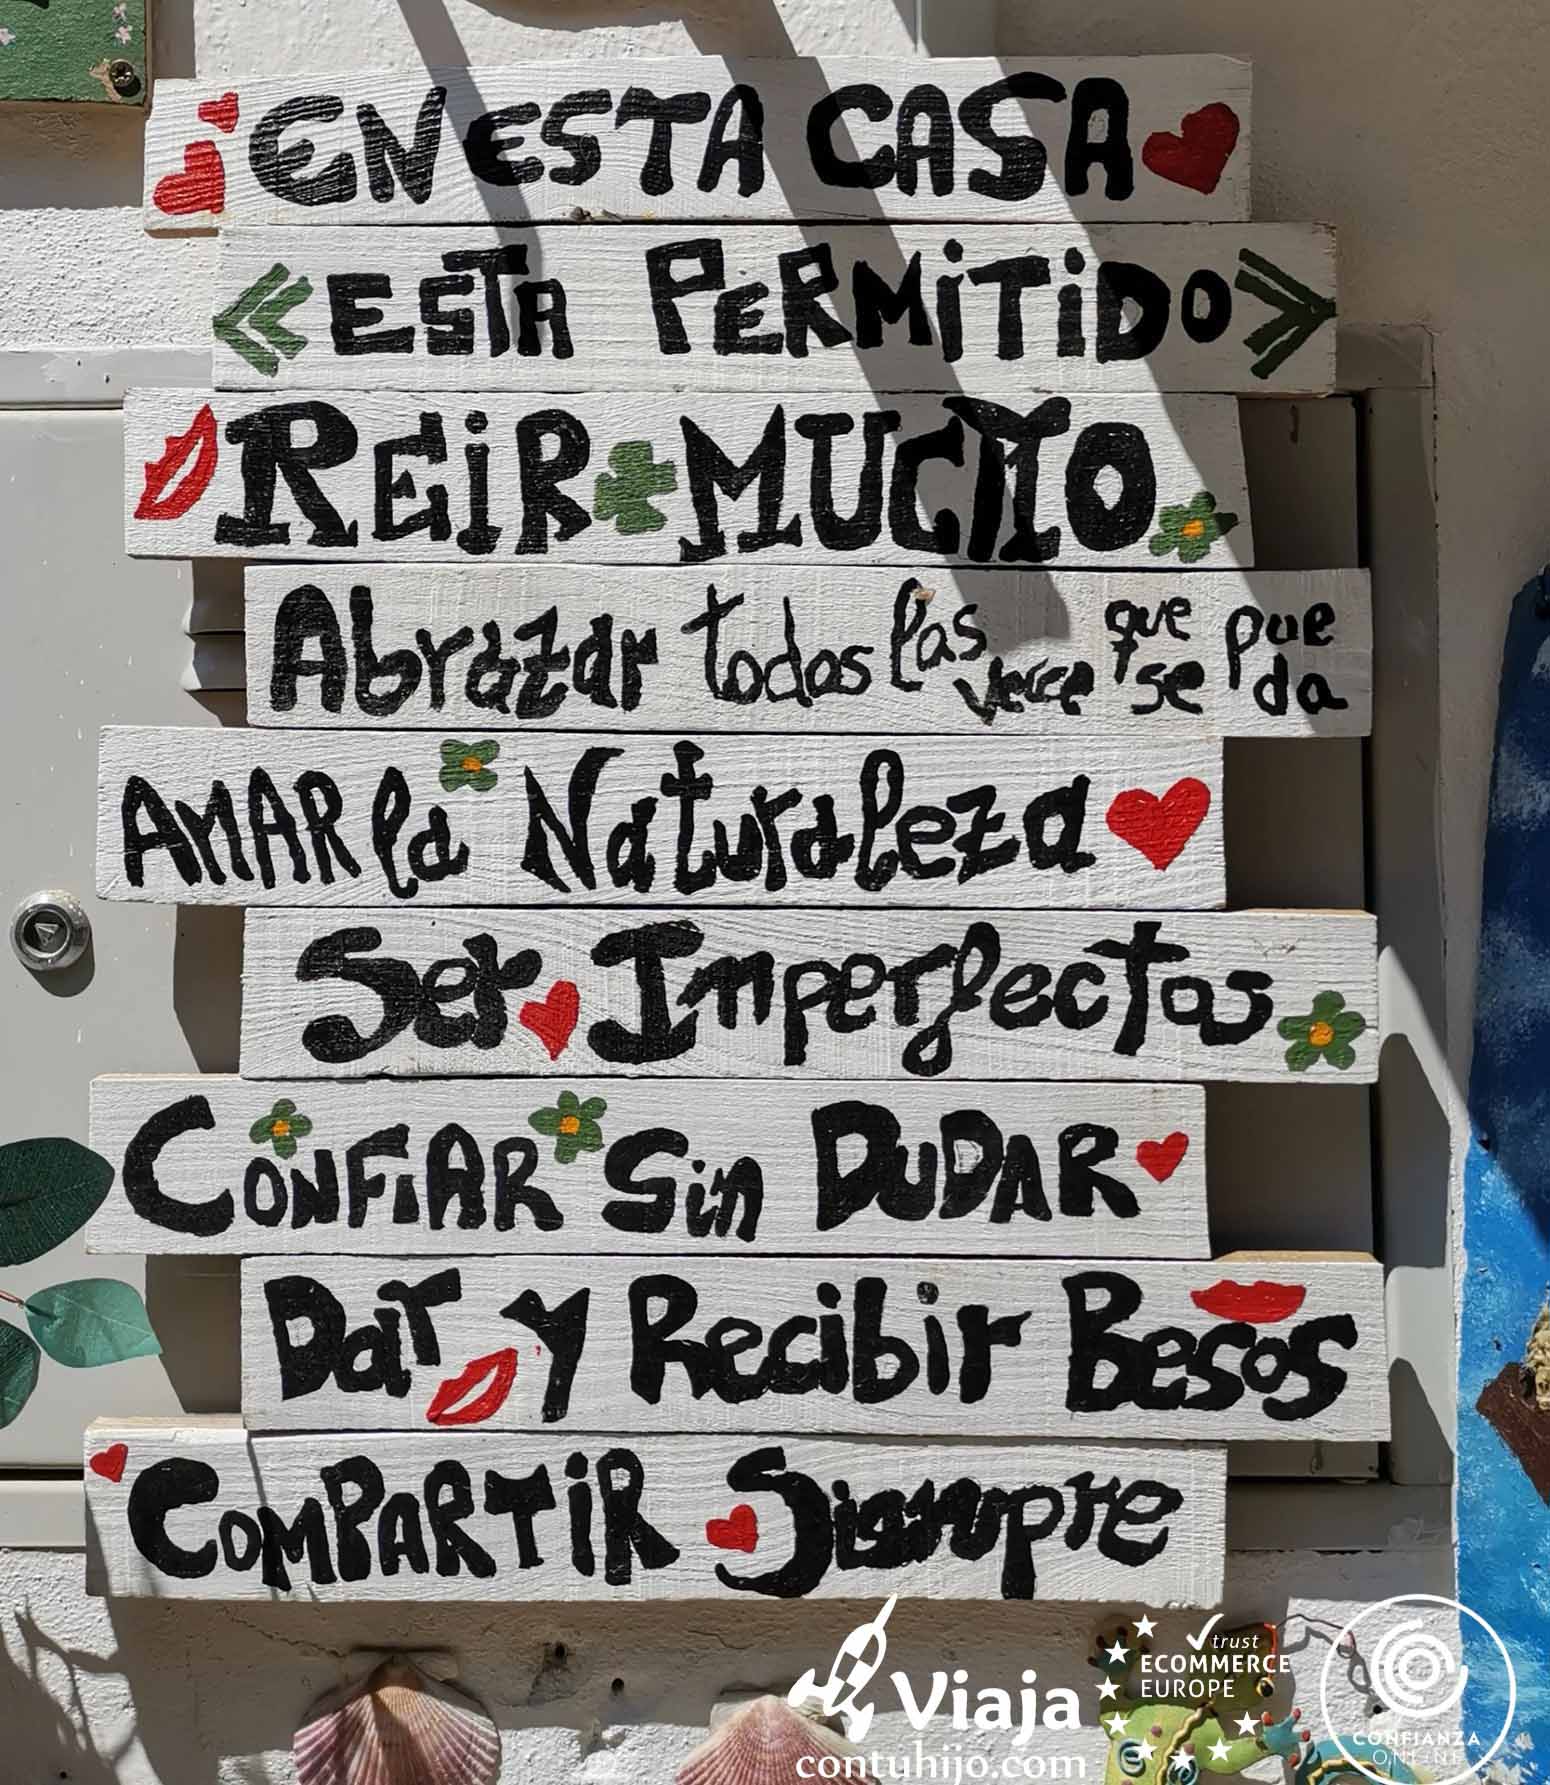 EN ESTA CASA
ESTA PERMITIDO
REIR MUCHO
Abrazar todas las vece que se pueda
AMAR la Naturaleza
Ser Imperfectos
CONFiAR Sin DUDAR
Dar y Recibir Besos
COMPARTIR Siempre
Viaja
contuhijo.com
trust
ECOMMERCE
EUROPE
CONFIANZA
ONLINE